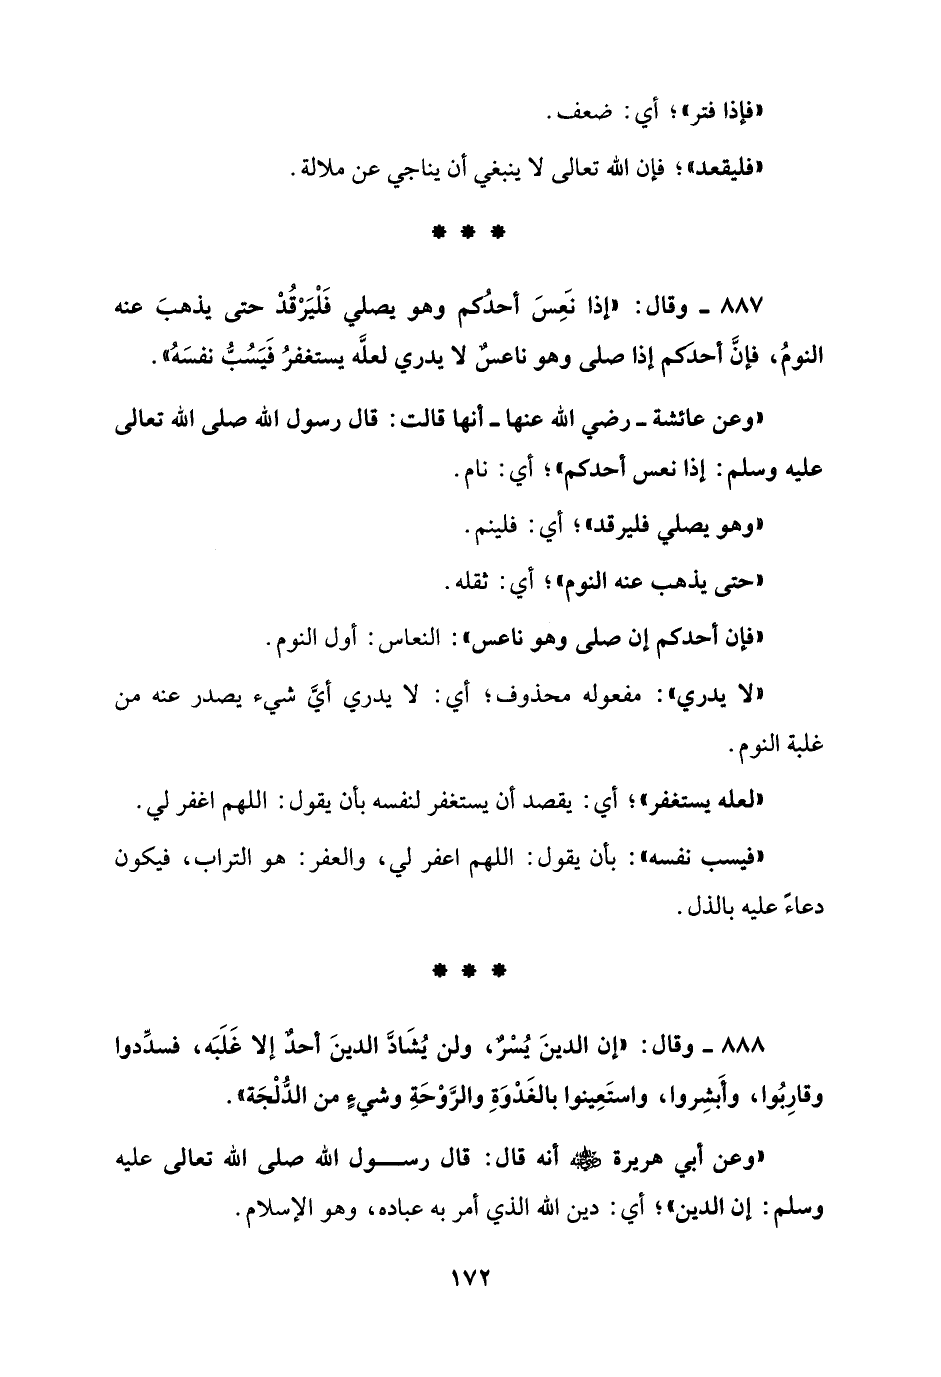 «فإذا فتر»؛ أي: ضعف.
«فليقعد»؛ فإن الله تعالى لا ينبغي أن يناجي عن ملالة.
* * *
٨٨٧ ـ وقال: «إذا نَعِسَ أحدُكم وهو يصلي فَلْيَرْقُدْ حتى يذهبَ عنه
النومُ، فإنَّ أحدَكم إذا صلى وهو ناعسٌ لا يدري لعلَّه يستغفرُ فَيَسُبُّ نفسَهُ».
«وعن عائشة ـ رضي الله عنها ـ أنها قالت: قال رسول الله صلى الله تعالى
عليه وسلم: إذا نعس أحدكم»؛ أي: نام.
«وهو يصلي فليرقد»؛ أي: فلينم.
«حتى يذهب عنه النوم»؛ أي: ثقله.
«فإن أحدكم إن صلى وهو ناعس»: النعاس: أول النوم.
«لا يدري»: مفعوله محذوف؛ أي: لا يدري أيَّ شيء يصدر عنه من
غلبة النوم.
«لعله يستغفر»؛ أي: يقصد أن يستغفر لنفسه بأن يقول: اللهم اغفر لي.
«فيسب نفسه»: بأن يقول: اللهم اعفر لي، والعفر: هو التراب، فيكون
دعاءً عليه بالذل.
* * *
٨٨٨ ـ وقال: «إن الدينَ يُسْرٌ، ولن يُشَادَّ الدينَ أحدٌ إلا غَلَبَه، فسدِّدوا
وقارِبُوا، وأَبشِروا، واستَعِينوا بالغَدْوَةِ والرَّوْحَةِ وشيءٍ من الدُّلْجَة».
«وعن أبي هريرة ﷺ أنه قال: قال رســـول الله صلى الله تعالى عليه
وسلم: إن الدين»؛ أي: دين الله الذي أمر به عباده، وهو الإسلام.
١٧٢